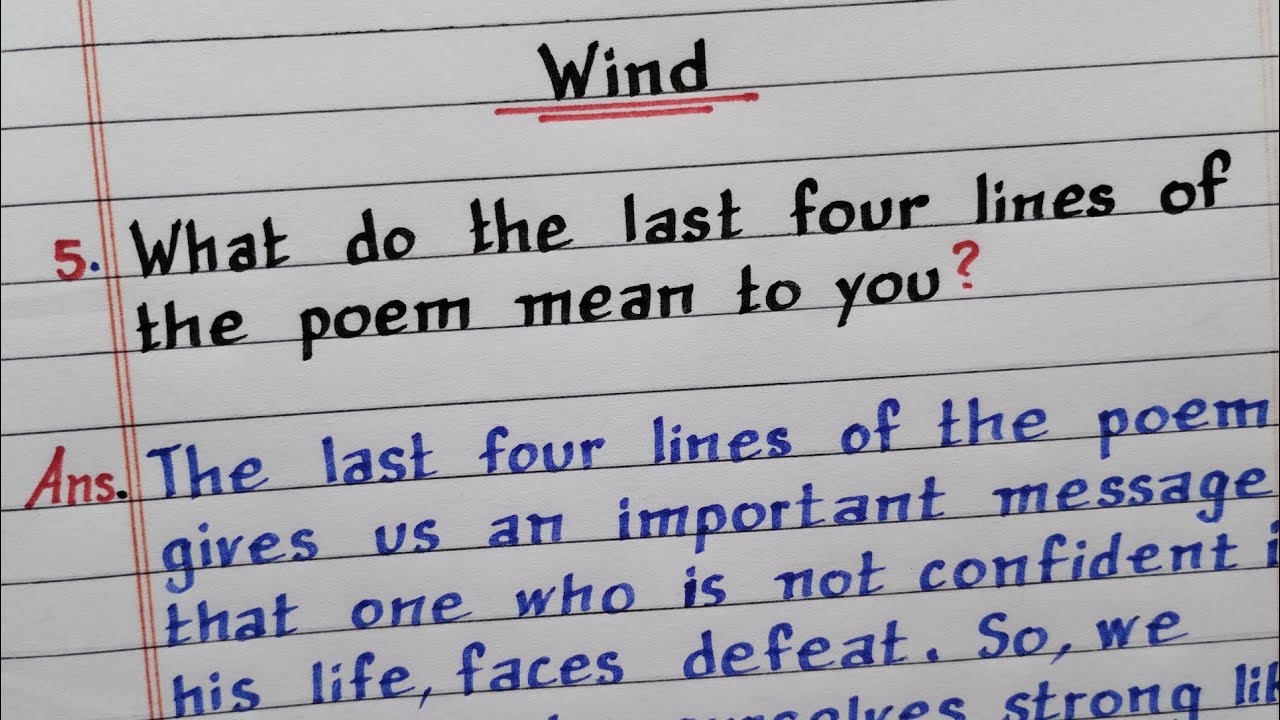 Wind
5. What do the last four lines of
the poem mean to you?
Ans. The last four lines of the poem
gives us an important message
that one who is not confident
his life, faces defeat. So, we
strong